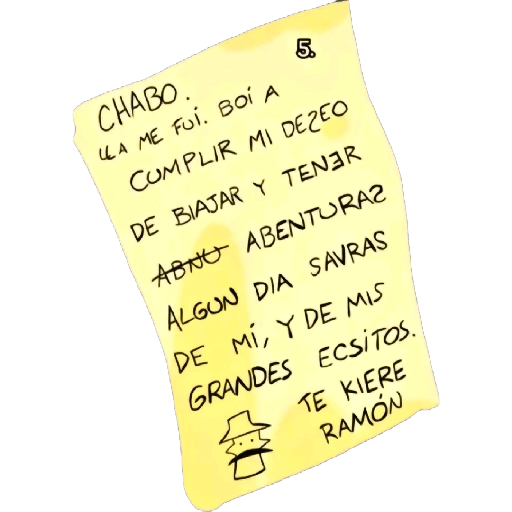 5.
CHABO.
LLA ME FUÍ. BOÍ A
CUMPLIR MI DEZEO
DE BIAJAR Y TENER
ABNU ABENTURAS
ALGUN DIA SAVRAS
DE MÍ, Y DE MIS
GRANDES ECSITOS.
TE KIERE
RAMÓN